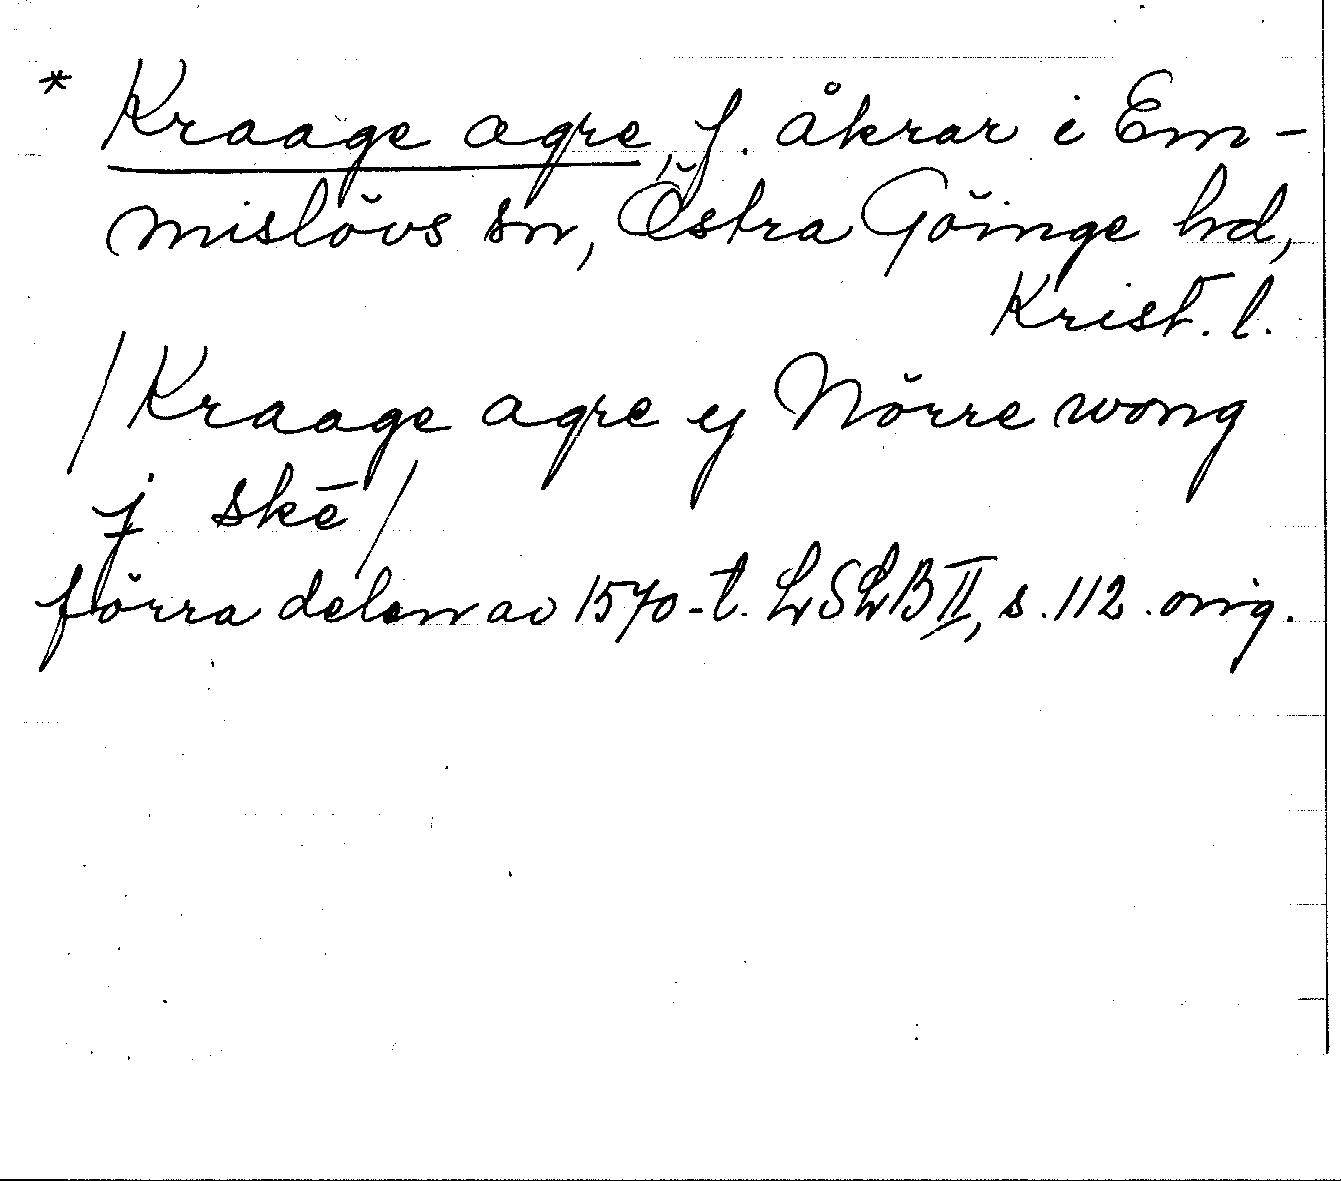 * Kraage agre, f. åkrar i Em-
mislövs sn, Östra Göinge hd,
Krist. l.
/Kraage agre ej Nörre wong
j skē/
förra delen av 1570-t. LSLB II, s. 112. orig.